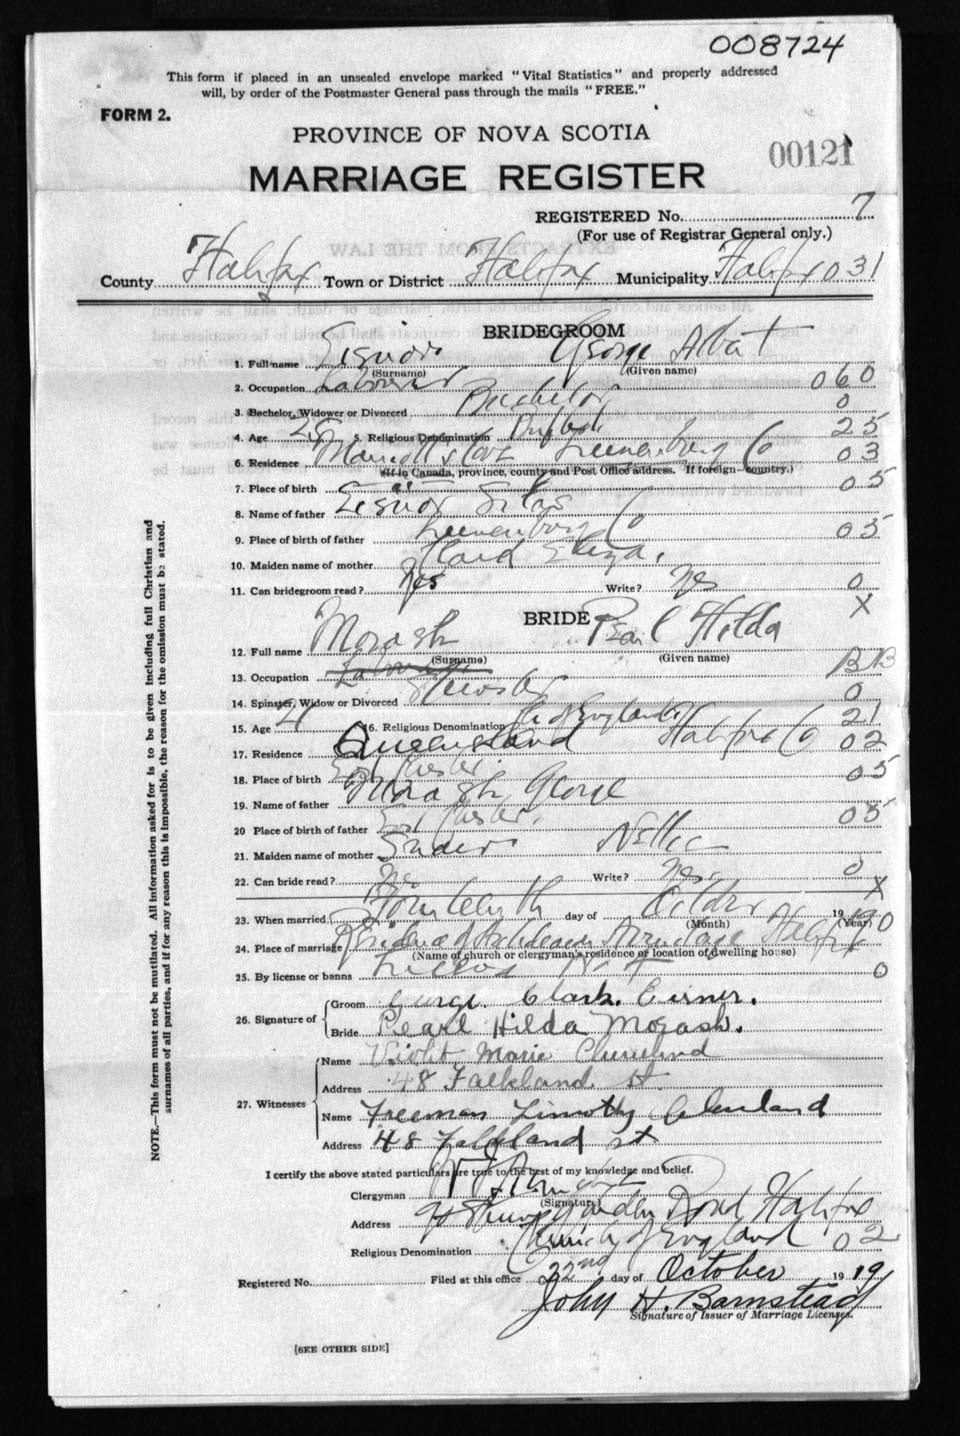 008724
This form if placed in an unsealed envelope marked "Vital Statistics" and properly addressed
will, by order of the Postmaster General pass through the mails "FREE."
FORM 2.
PROVINCE OF NOVA SCOTIA
00121
MARRIAGE REGISTER
REGISTERED No. 7
(For use of Registrar General only.)
County Halifax Town or District Halifax Municipality Halifax 031
BRIDEGROOM
1. Full name George Albert
(Surname) (Given name)
2. Occupation Labourer 060
3. Bachelor, Widower or Divorced Bachelor 0
4. Age 25 5. Religious Denomination 25
6. Residence Lunenburg Co 03
(If in Canada, province, county and Post Office address. If foreign—country.)
7. Place of birth 05
8. Name of father Silas
9. Place of birth of father Lunenburg Co 05
10. Maiden name of mother Eliza.
11. Can bridegroom read? Yes Write? Yes 0
BRIDE X
12. Full name Morash Pearl Hilda
(Surname) (Given name)
13. Occupation BB
14. Spinster, Widow or Divorced Spinster 0
15. Age 21 16. Religious Denomination Ch of England 21
17. Residence Queensland Halifax Co 02
18. Place of birth Chester. 05
19. Name of father Morash George
20 Place of birth of father Chester. 05
21. Maiden name of mother Nellie
22. Can bride read? Yes Write? Yes 0
X
23. When married Fourteenth day of October 19
(Month) (Year)
24. Place of marriage Residence of Archdeacon Armitage Halifax
(Name of church or clergyman's residence or location of dwelling house)
25. By license or banns License 0
26. Signature of
Groom George Clark.
Bride Pearl Hilda Morash.
27. Witnesses
Name Violet Marie Cleveland
Address 48 Falkland. St.
Name Freeman Timothy Cleveland
Address 48 Falkland st
I certify the above stated particulars are true to the best of my knowledge and belief.
Clergyman
(Signature)
Address Garden Road Halifax
Religious Denomination Church of England 02
Registered No. Filed at this office 22nd day of October 19 19
John H. Barnstead
Signature of Issuer of Marriage Licenses.
[SEE OTHER SIDE]
NOTE.—This form must not be mutilated. All information asked for is to be given including full Christian and
surnames of all parties, and if for any reason this is impossible, the reason for the omission must be stated.